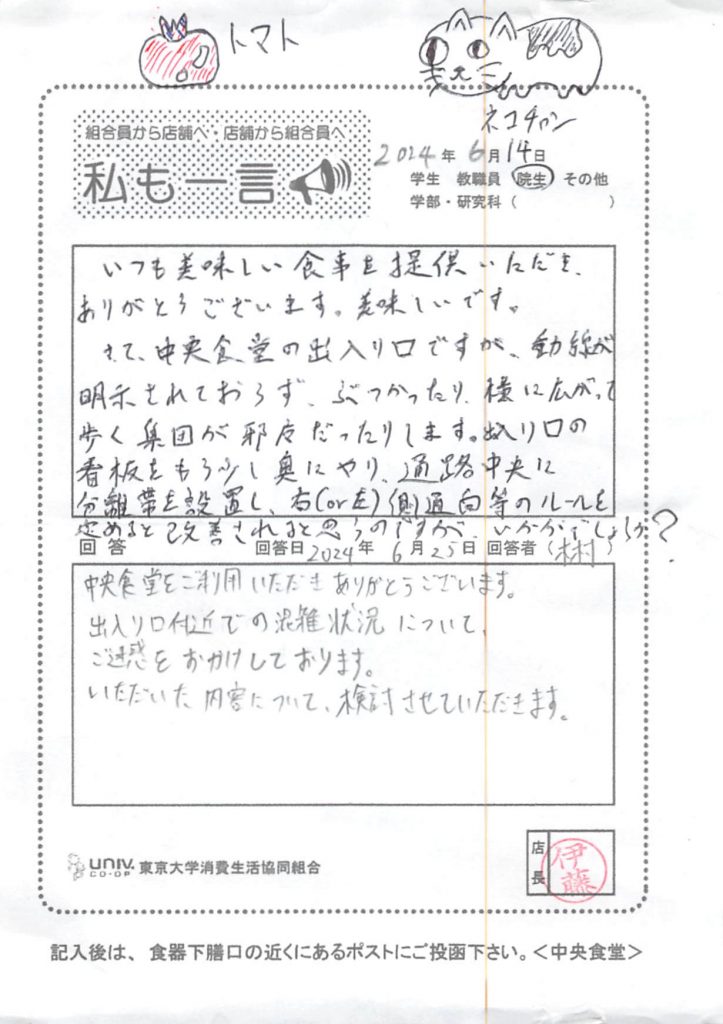 トマト
ネコチャン
組合員から店舗へ・店舗から組合員へ
私も一言
2024年 6月14日
学生 教職員 院生 その他
学部・研究科( )
いつも美味しい食事を提供いただき、
ありがとうございます。美味しいです。
さて、中央食堂の出入り口ですが、動線が
明示されておらず、ぶつかったり、横に広がって
歩く集団が邪魔だったりします。出入り口の
看板をもう少し奥にやり、通路中央に
分離帯を設置し、右(or左)側通向等のルールを
定めると改善されると思うのですが、いかがでしょうか?
回答 回答日 2024年 6月25日 回答者(木村)
中央食堂をご利用いただきありがとうございます。
出入り口付近での混雑状況について、
ご迷惑をおかけしております。
いただいた内容について、検討させていただきます。
UNIV. CO-OP 東京大学消費生活協同組合
店長 伊藤
記入後は、食器下膳口の近くにあるポストにご投函下さい。<中央食堂>